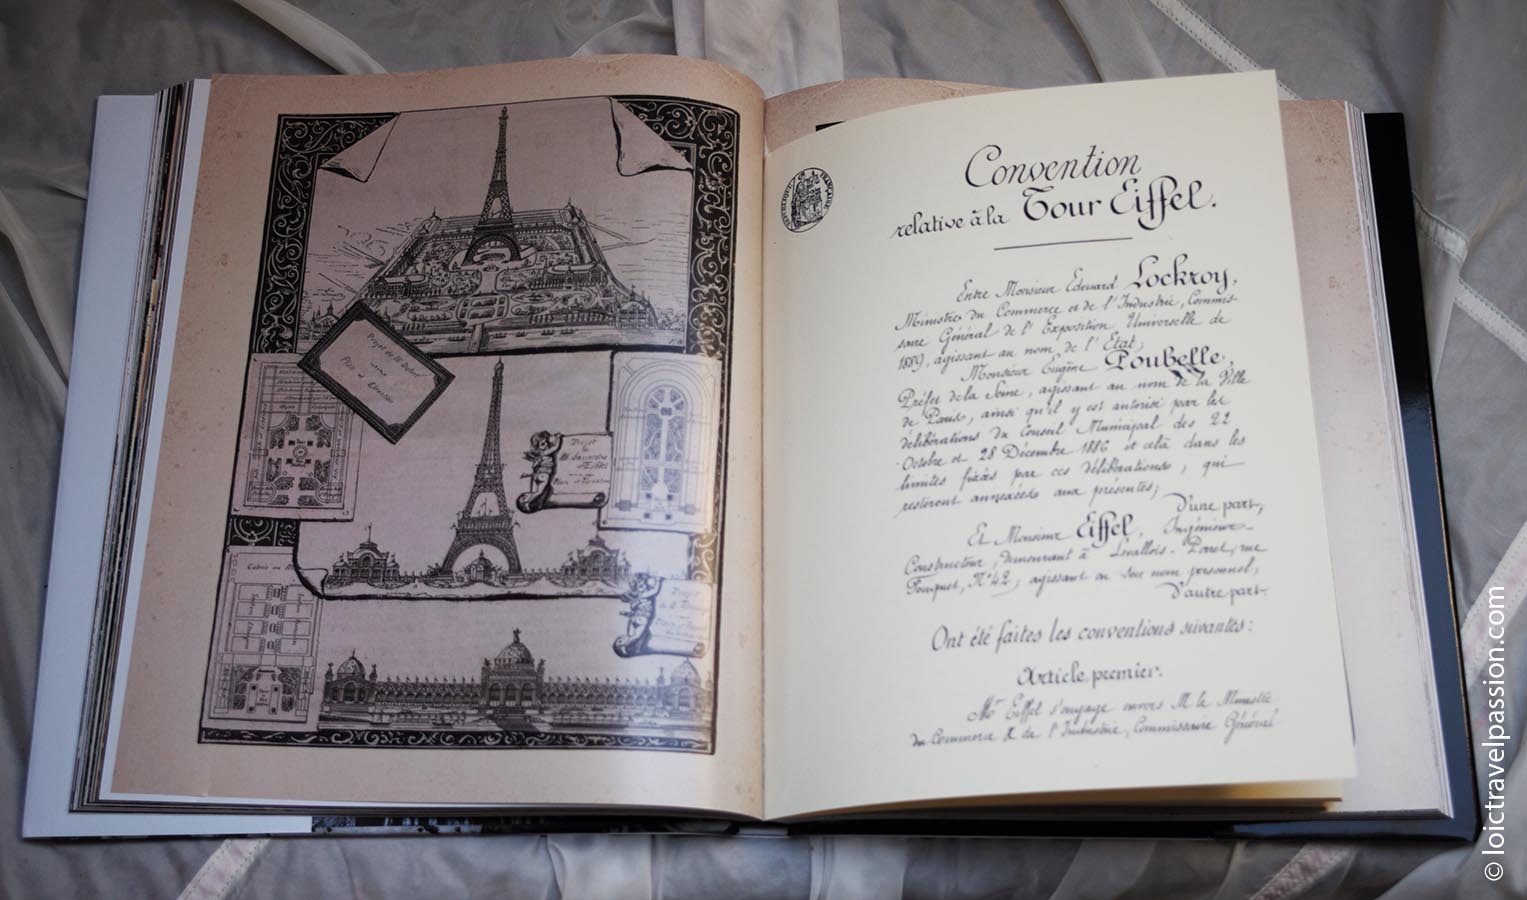 Projet de Mr Dutert
Plan et Elévation
Projet
de
Mr Sauvestre
Plan et Elévation
RÉPUBLIQUE FRANÇAISE
Convention
relative à la Tour Eiffel.
Entre Monsieur Edouard Lockroy,
Ministre du Commerce et de l'Industrie, Commis-
saire Général de l'Exposition Universelle de
1889, agissant au nom de l'Etat;
Monsieur Eugène Poubelle,
Préfet de la Seine, agissant au nom de la Ville
de Paris, ainsi qu'il y est autorisé par les
délibérations du Conseil Municipal des 22
Octobre et 28 Décembre 1886 et celà dans les
limites fixées par ces délibérations, qui
resteront annexées aux présentes;
D'une part,
Et Monsieur Eiffel, Ingénieur-
Constructeur, demeurant à Levallois-Perret, rue
Fouquet, N° 42; agissant en son nom personnel;
D'autre part-
Ont été faites les conventions suivantes:
Article premier.
Mr Eiffel s'engage envers M le Ministre
du Commerce & de l'Industrie, Commissaire Général
© loictravelpassion.com